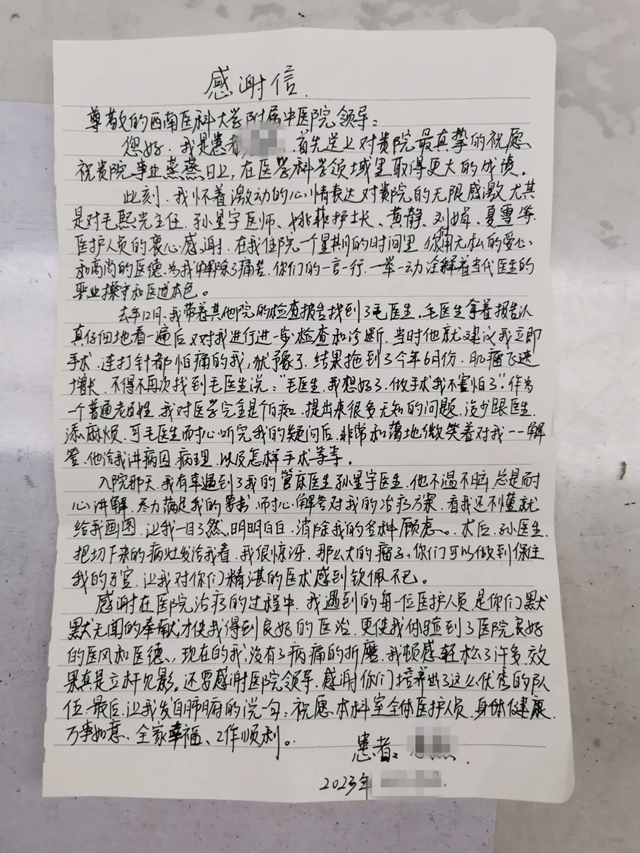 感谢信.
尊敬的西南医科大学附属中医院领导:
您好,我是患者 首先送上对贵院最真挚的祝愿
祝贵院事业蒸蒸日上,在医学科学领域里取得更大的成绩。
此刻,我怀着激动的心情表达对贵院的无限感激尤其
是对毛熙光主任、孙星宇医师、姚菲护士长、黄静、刘婷、夏雪等
医护人员的衷心感谢.在我住院一个星期的时间里,你们用无私的爱心
和高尚的医德,为我解除了痛苦,你们的一言一行.一举一动诠释着当代医生的
职业操守和医道本色。
去年12月,我带着其他院的检查报告找到了毛医生,毛医生拿着报告认
真仔细地看一遍后又对我进行进一步检查和诊断,当时他就建议我立即
手术,连打针都怕痛的我,犹豫了,结果拖到了今年6月份,肌瘤飞速
增长,不得不再次找到毛医生说:"毛医生,我想好了,做手术我不害怕了"作为
一个普通老百姓,我对医学完全是个白痴,提出来很多无知的问题,没少跟医生
添麻烦,可毛医生耐心听完我的疑问后,非常和蔼地微笑着对我一一解
答,他给我讲病因,病理,以及怎样手术等等.
入院那天,我有幸遇到了我的管床医生孙星宇医生,他不温不躁总是耐
心讲解,尽力满足我的需求,耐心解答对我的治疗方案,看我还不懂就
给我画图,让我一目了然,明明白白,消除我的各种顾虑.术后,孙医生
把切下来的病灶发给我看,我很惊讶,那么大的瘤子,你们可以做到保住
我的子宫,让我对你们精湛的医术感到钦佩不已。
感谢在医院治疗的过程中,我遇到的每一位医护人员,是你们默
默无闻的奉献才使我得到良好的医治,更使我体验到了医院良好
的医风和医德,现在的我,没有了病痛的折磨,我顿感轻松了许多,效
果真是立杆见影。还要感谢医院领导,感谢你们培养出了这么优秀的队
伍.最后,让我发自肺腑的说一句,祝愿本科室全体医护人员,身体健康,
万事如意、全家幸福、工作顺利。
患者:
2023年